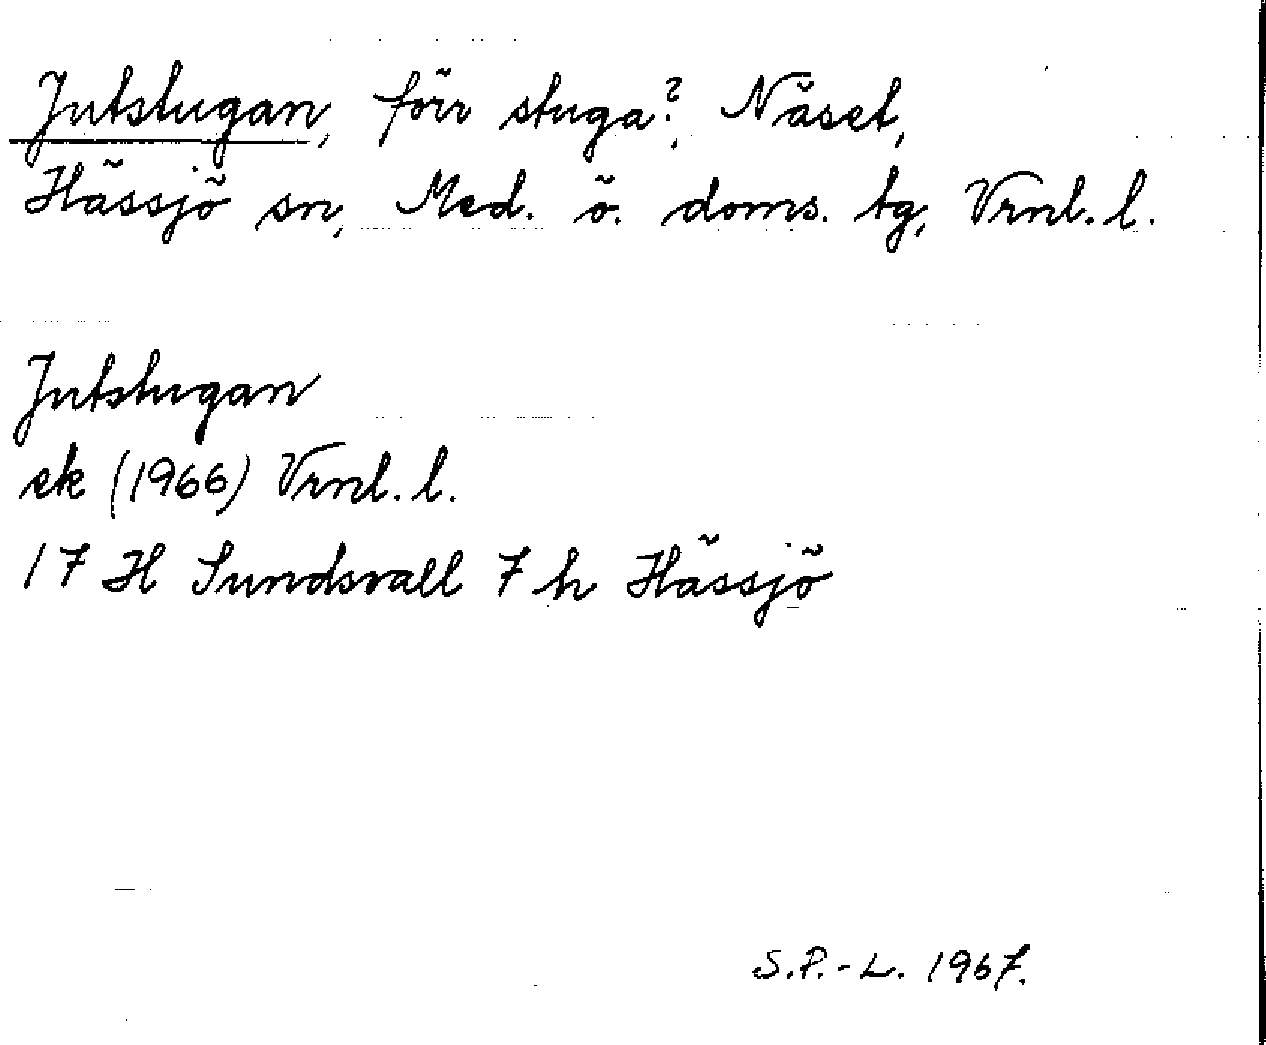 Jutstugan, förr stuga?, Näset,
Hässjö sn, Med. ö. doms. tg, Vrnl. l.
Jutstugan
ek (1966) Vrnl. l.
17 H Sundsvall 7 h Hässjö
S.P.-L. 1967.